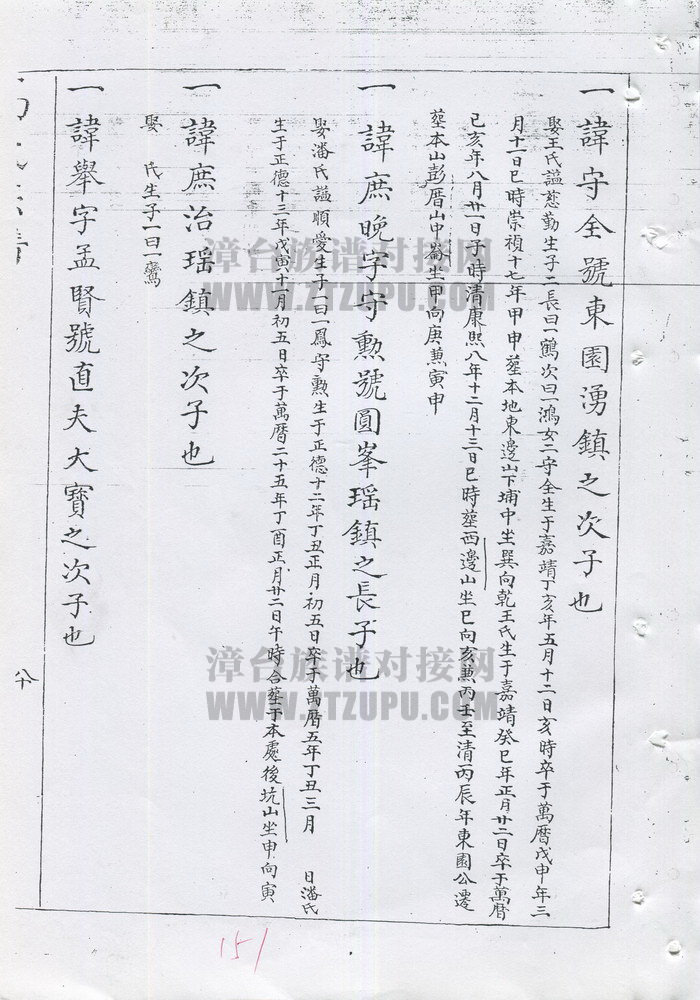 一諱守全號東園湧鎮之次子也
娶王氏謚慈勤生子二長曰一鶴次曰一鴻女二守全生于嘉靖丁亥年五月十二日亥時卒于萬曆戊申年三
月十一日巳時崇禎十七年甲申塟本地東邊山下埔中坐巽向乾王氏生于嘉靖癸巳年正月廿二日卒于萬曆
己亥年八月廿一日子時清康熙八年十二月十三日巳時塟西邊山坐巳向亥兼丙壬至清丙辰年東園公遷
塟本山彭厝山中崙坐甲向庚兼寅申
一諱庶晚字守勲號圓峯瑶鎮之長子也
娶潘氏謚順愛生子一曰一鳳守勲生于正德十二年丁丑正月初五日卒于萬曆五年丁丑三月 日潘氏
生于正德十三年戊寅十一月初五日卒于萬曆二十五年丁酉正月廿二日午時合塟于本處後坑山坐申向寅
一諱庶治瑶鎮之次子也
娶 氏生子一曰一鸞
一諱舉字孟賢號直夫大寶之次子也
151
漳台族谱对接网
WWW.ZTZUPU.COM
漳台族谱对接网
WWW.ZTZUPU.COM